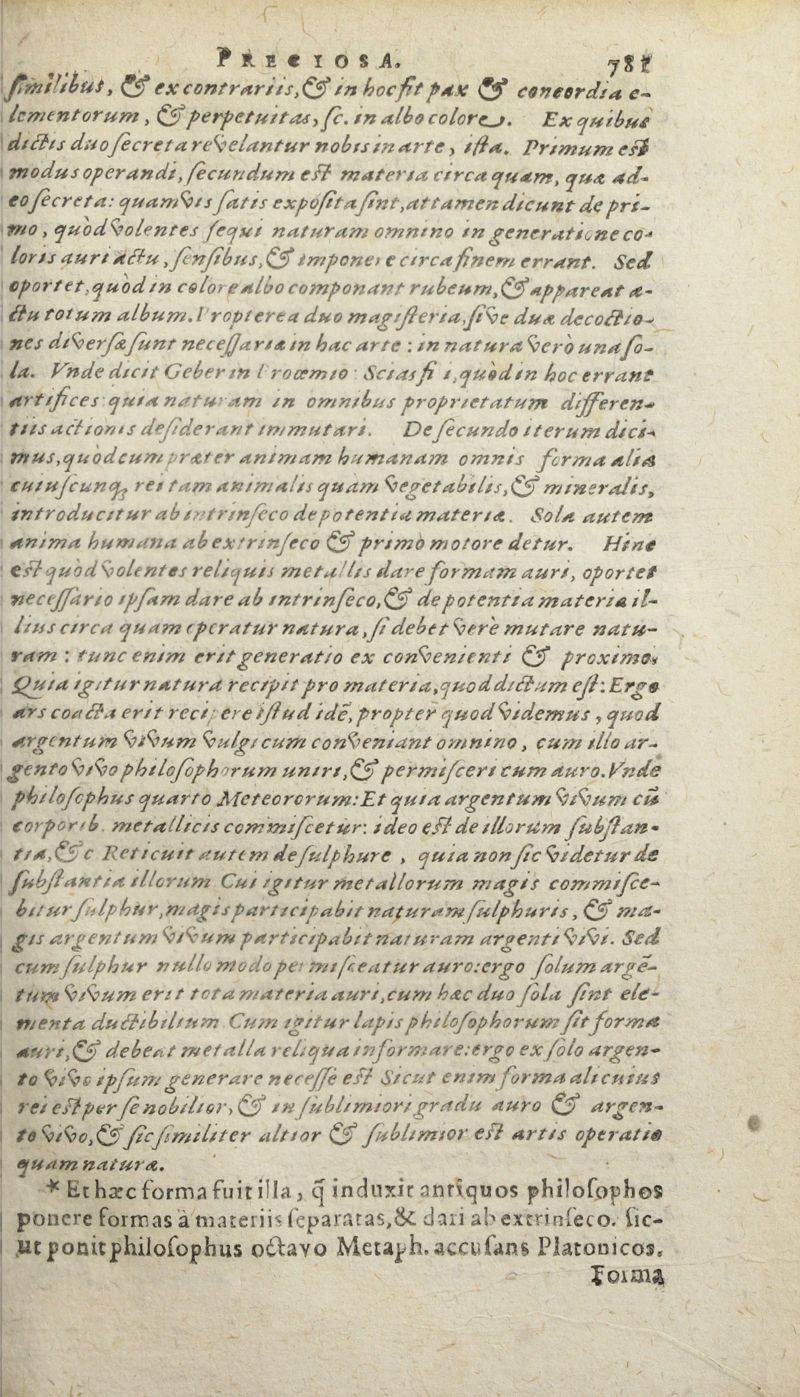 PRECIOSA. 781
ſimilibus, & ex contrariis, & in hoc fit pax & concordia e-
lementorum, & perpetuitas, ſc. in albo colore. Ex quibus
dictis duo ſecreta revelantur nobis in arte, iſta. Primum eſt
modus operandi, ſecundum eſt materia circa quam, quæ ad-
eo ſecreta: quamvis ſatis expoſita ſint, attamen dicunt de pri-
mo, quòd volentes ſequi naturam omnino in generatione co-
loris auri actu, ſenſibus, & imponere circa finem errant. Sed
oportet, quòd in colore albo componant rubeum, & appareat a-
ctu totum album. Propterea duo magiſteria, ſive duæ decoctio-
nes diverſæ ſunt neceſſaria in hac arte: in natura verò una ſo-
la. Vnde dicit Geber in Proœmio: Scias fi i, quòd in hoc errant
artifices: quia naturam in omnibus proprietatum differen-
tiis actionis deſiderant immutari. De ſecundo iterum dici-
mus, quòd cum præter animam humanam omnis forma alia
cuiuſcunq; rei tam animalis quam vegetabilis, & mineralis,
introducitur ab intrinſeco de potentia materiæ. Sola autem
anima humana ab extrinſeco & primò motore detur. Hinc
eſt quòd volentes reliquis metallis dare formam auri, oportet
neceſſario ipſam dare ab intrinſeco, & de potentia materiæ il-
lius circa quam operatur natura, ſi debet verè mutare natu-
ram: tunc enim erit generatio ex convenienti & proximo.
Quia igitur natura recipit pro materia, quod dictum eſt: Ergo
ars coacta erit recipere iſtud idē, propter quod videmus, quod
argentum vivum vulgi cum conveniant omnino, cum illo ar-
gento vivo philoſophorum uniri, & permiſceri cum auro. Vnde
philoſophus quarto Meteororum: Et quia argentum vivum cū
corporib. metallicis commiſcetur: ideo eſt de illorum ſubſtan-
tia, &c Reticuit autem de ſulphure, quia non ſic videtur de
ſubſtantia illorum Cui igitur metallorum magis commiſce-
bitur ſulphur, magis participabit naturam ſulphuris, & ma-
gis argentum vivum participabit naturam argenti vivi. Sed
cum ſulphur nullo modo permiſceatur auro: ergo ſolum argē-
tum vivum erit tota materia auri, cum hæc duo ſola ſint ele-
menta ductibilium Cum igitur lapis philoſophorum ſit forma
auri, & debeat metalla reliqua informare: ergo ex ſolo argen-
to vivo ipſum generare neceſſe eſt Sicut enim forma alicuius
rei eſt per ſe nobilior, & in ſublimiori gradu auro & argen-
to vivo, & ſic ſimiliter altior & ſublimior eſt artis operatio
quam naturæ.
* Et hæc forma fuit illa, q̄ induxit antiquos philoſophos
ponere formas à materiis ſeparatas, & dari ab extrinſeco. ſic-
ut ponit philoſophus octavo Metaph. accuſans Platonicos.
Forma